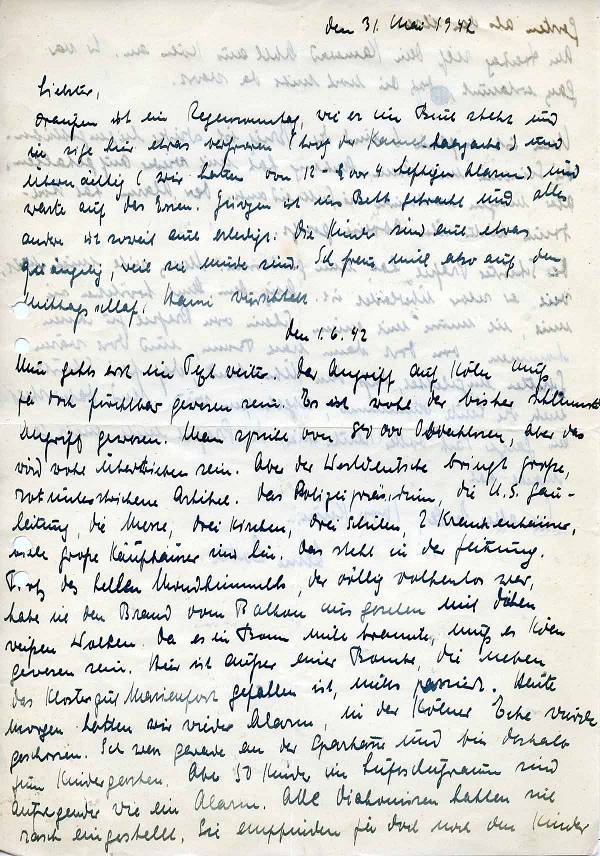 den 31. Mai 1942
Liebster,
draußen ist ein Regensonntag, wie er im Buch steht und
ich sitze hier etwas verfroren (trotz der Kamelhaarjacke) und
übernächtig (wir hatten von 12 - 8 vor 4 heftigen Alarm) und
warte auf das Essen. Jürgen ist ins Bett gebracht und alles
andere ist soweit auch erledigt. Die Kinder sind auch etwas
quängelig, weil sie müde sind. Ich freue mich also auf den
Mittagsschlaf.
den 1.6.42
Nun gehts erst ein weiter. Der Angriff auf Köln muß
ja doch furchtbar gewesen sein. Es ist wohl der bisher schlimmste
Angriff gewesen. Man spricht von 80 000 Obdachlosen, aber das
wird wohl übertrieben sein. Aber der Westdeutsche bringt große,
rot unterstrichene Artikel. Das Polizeipräsidium, die Gau-
leitung, die Messe, drei Kirchen, drei Schulen, 2 Krankenhäuser,
viele große Kaufhäuser sind hin. Das steht in der Zeitung.
Trotz des hellen Mondhimmels, der völlig wolkenlos war,
habe ich den Brand vom Balkon aus gesehen mit dicken
weißen Wolken. Da es in Bonn nicht brannte, muß es Köln
gewesen sein. Hier ist außer einer Bombe, die neben
das Klostergut Marienforst gefallen ist, nichts passiert. Heute
morgen hatten wir wieder Alarm, in der Kölner Ecke wurde
geschossen. Ich war gerade an der Sparkasse und bin deshalb
zum Kindergarten. Aber 50 Kinder im Luftschutzraum sind
aufregender wie ein Alarm. Alle Diakonissen hatten sich
rasch eingestellt. Sie empfinden ja doch noch den Kinder